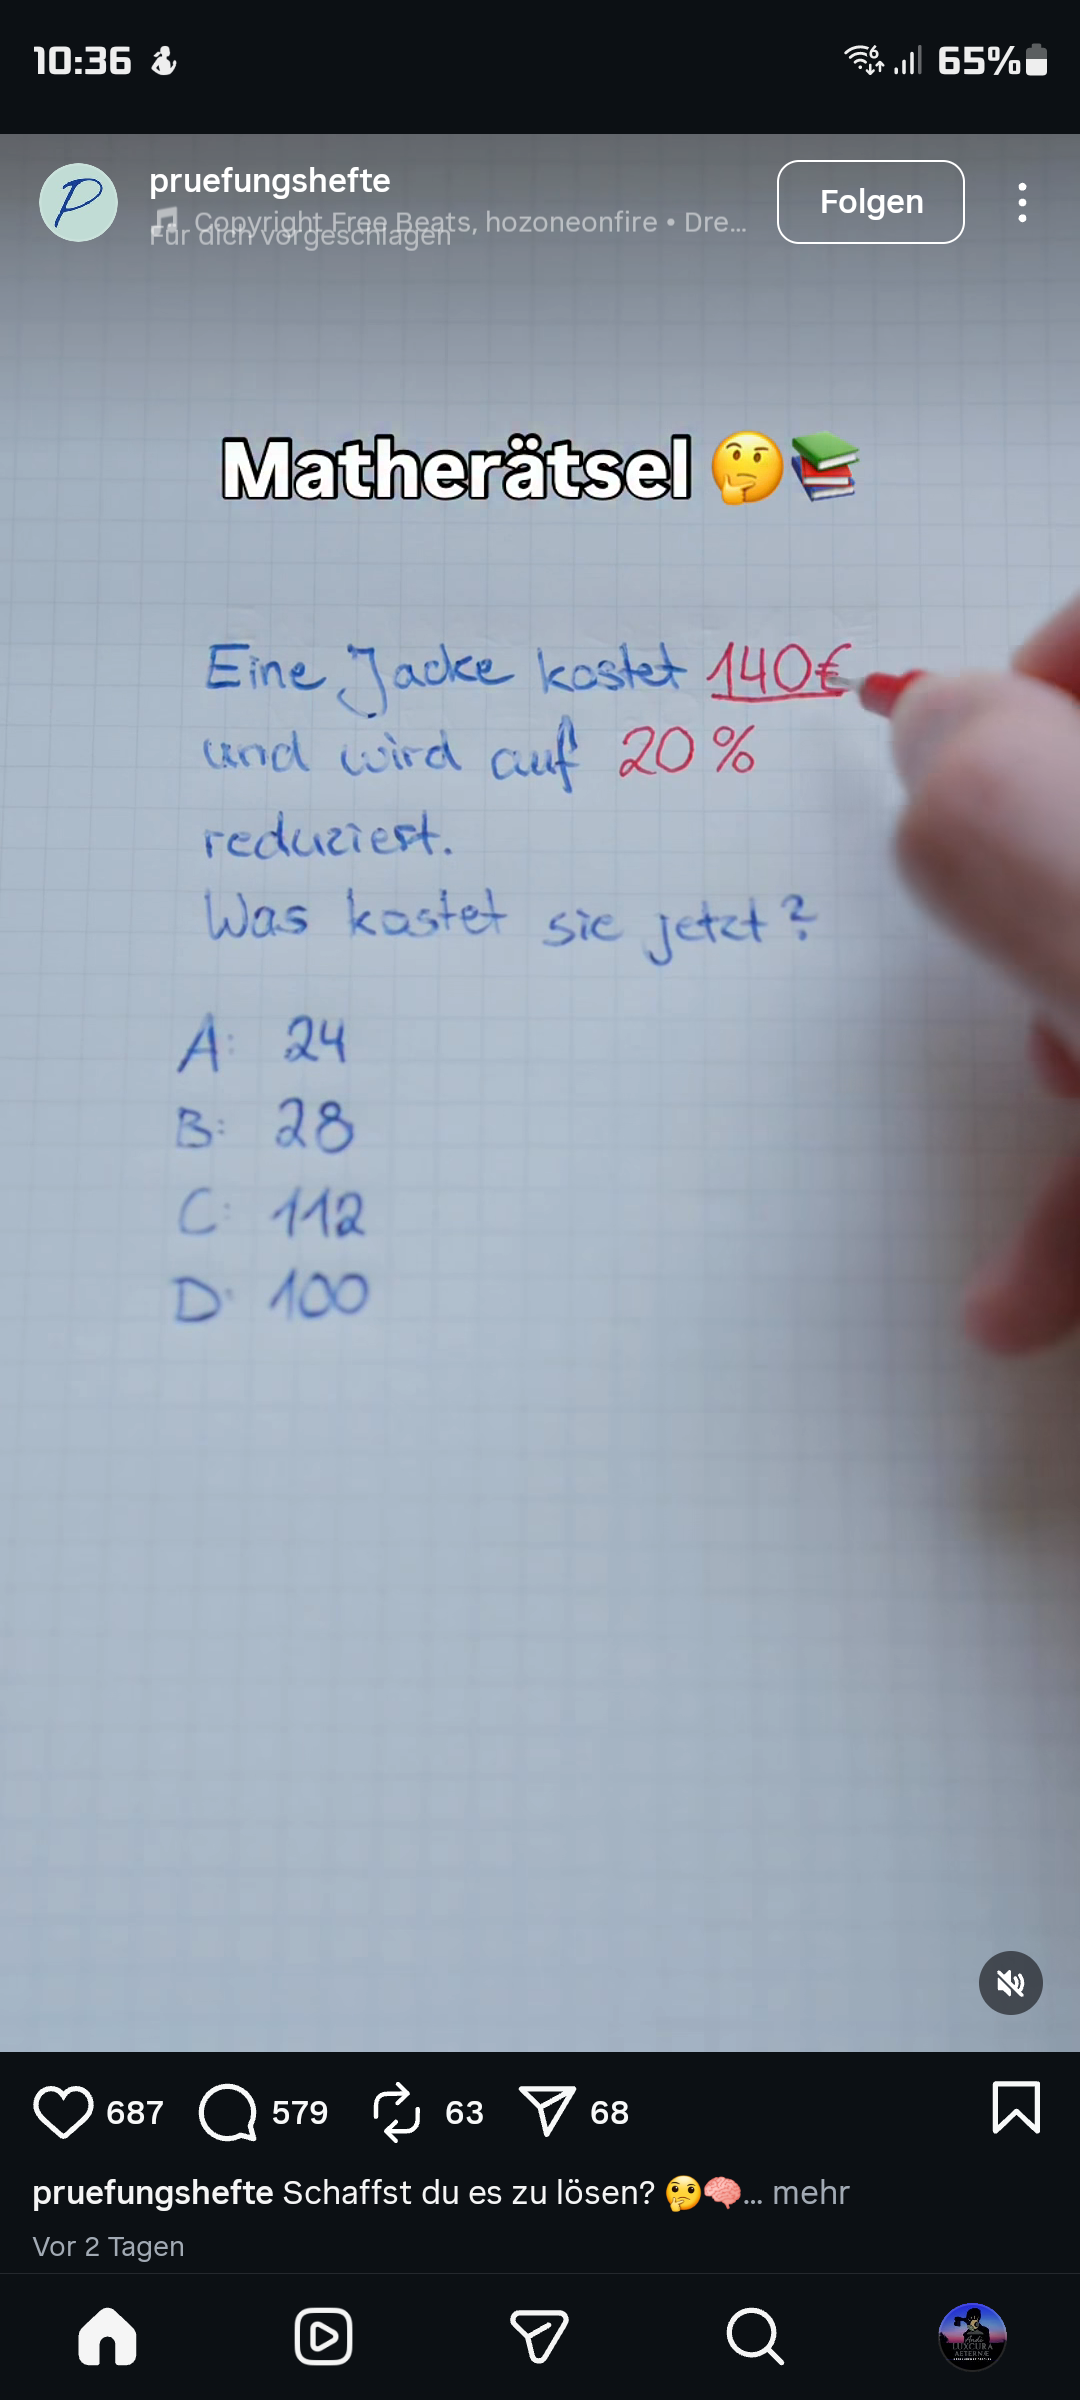 10:36
65%
pruefungshefte
Copyright Free Beats, hozoneonfire • Dre...
Für dich vorgeschlagen
Folgen
Matherätsel 🤔📚
Eine Jacke kostet 140€
und wird auf 20%
reduziert.
Was kostet sie jetzt?
A: 24
B: 28
C: 112
D: 100
687
579
63
68
pruefungshefte Schaffst du es zu lösen? 🤔🧠... mehr
Vor 2 Tagen